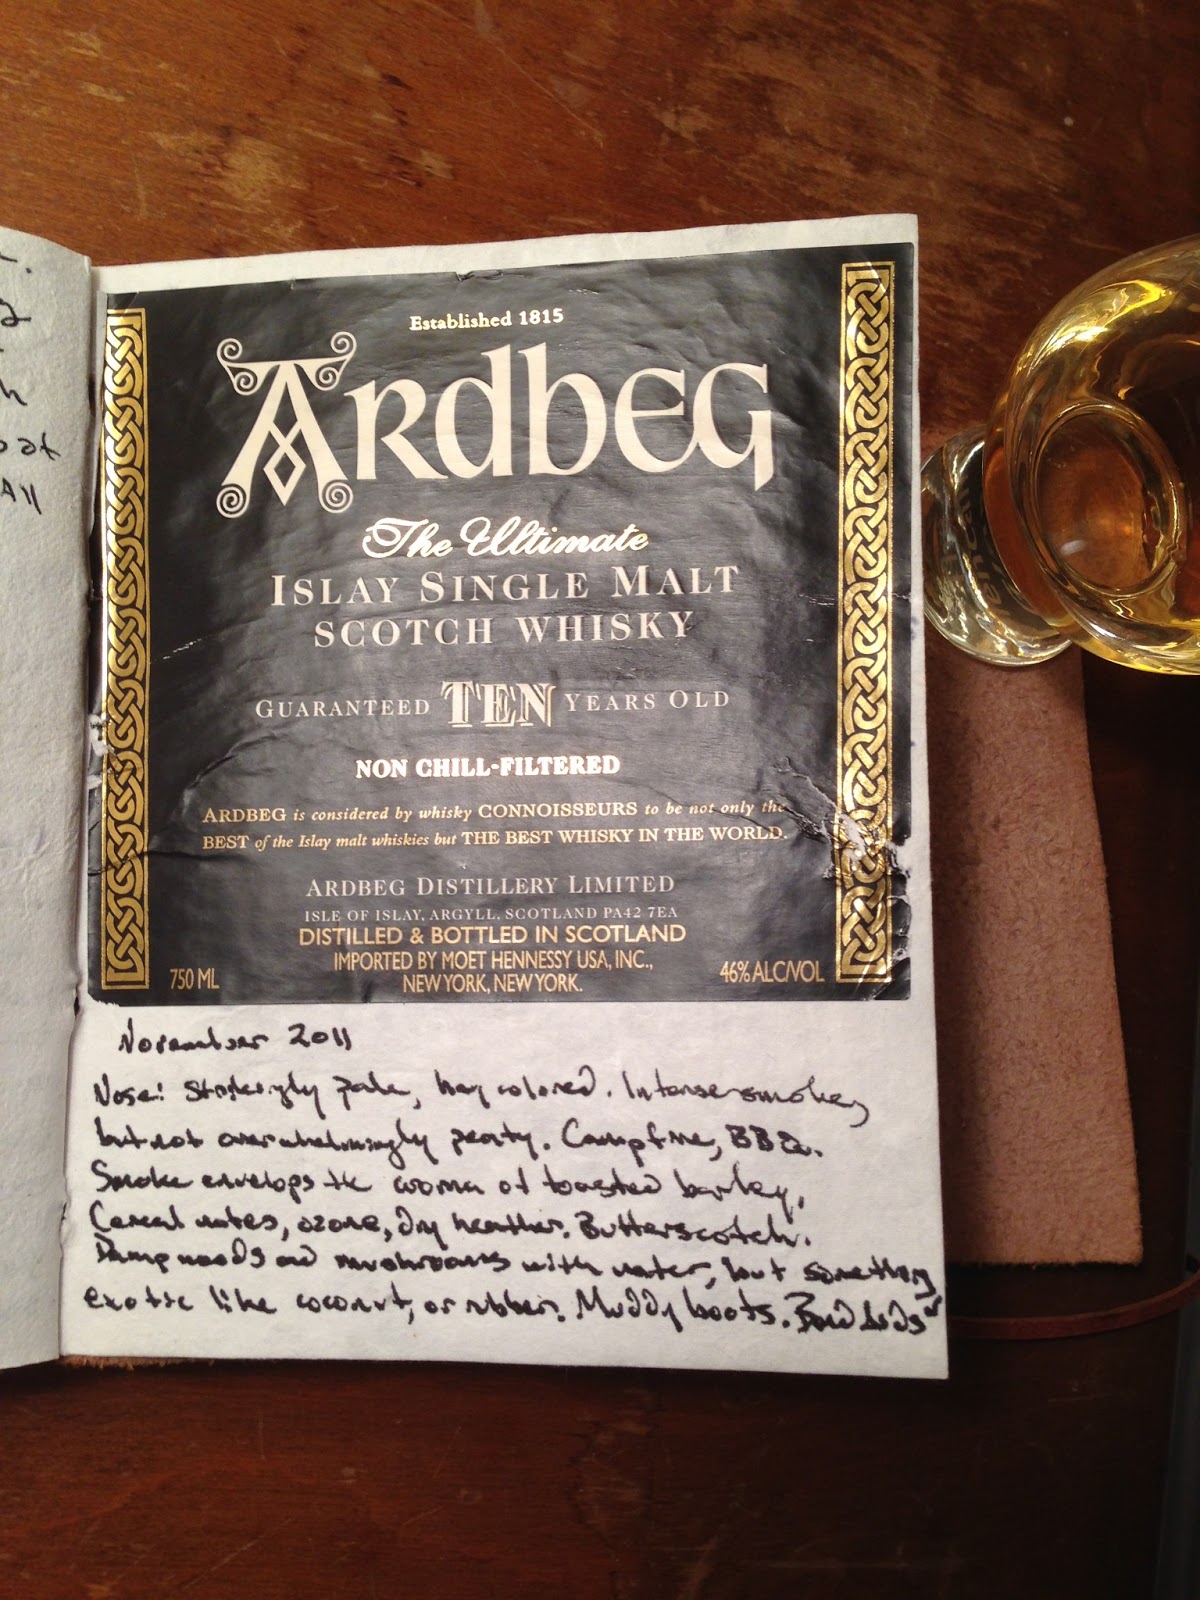 Established 1815
ARDBEG
The Ultimate
ISLAY SINGLE MALT
SCOTCH WHISKY
GUARANTEED TEN YEARS OLD
NON CHILL-FILTERED
ARDBEG is considered by whisky CONNOISSEURS to be not only the
BEST of the Islay malt whiskies but THE BEST WHISKY IN THE WORLD.
ARDBEG DISTILLERY LIMITED
ISLE OF ISLAY, ARGYLL, SCOTLAND PA42 7EA
DISTILLED & BOTTLED IN SCOTLAND
IMPORTED BY MOET HENNESSY USA, INC.,
750 ML NEW YORK, NEW YORK. 46% ALC/VOL
November 2011
Nose: Strikingly pale, hay colored. Intense smoke,
but not overwhelmingly peaty. Campfire, BBQ.
Smoke envelops the aroma of toasted barley.
Cereal notes, ozone, dry heather. Butterscotch.
Damp woods and mushrooms with water, but something
exotic like coconut, or rubber. Muddy boots.